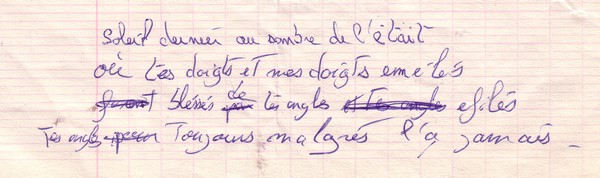 Soleil dernier au sombre de l'était
où tes doigts et mes doigts emmêlés
blessés de tes ongles effilés
Tes ongles Toujours malgrés l'à jamais